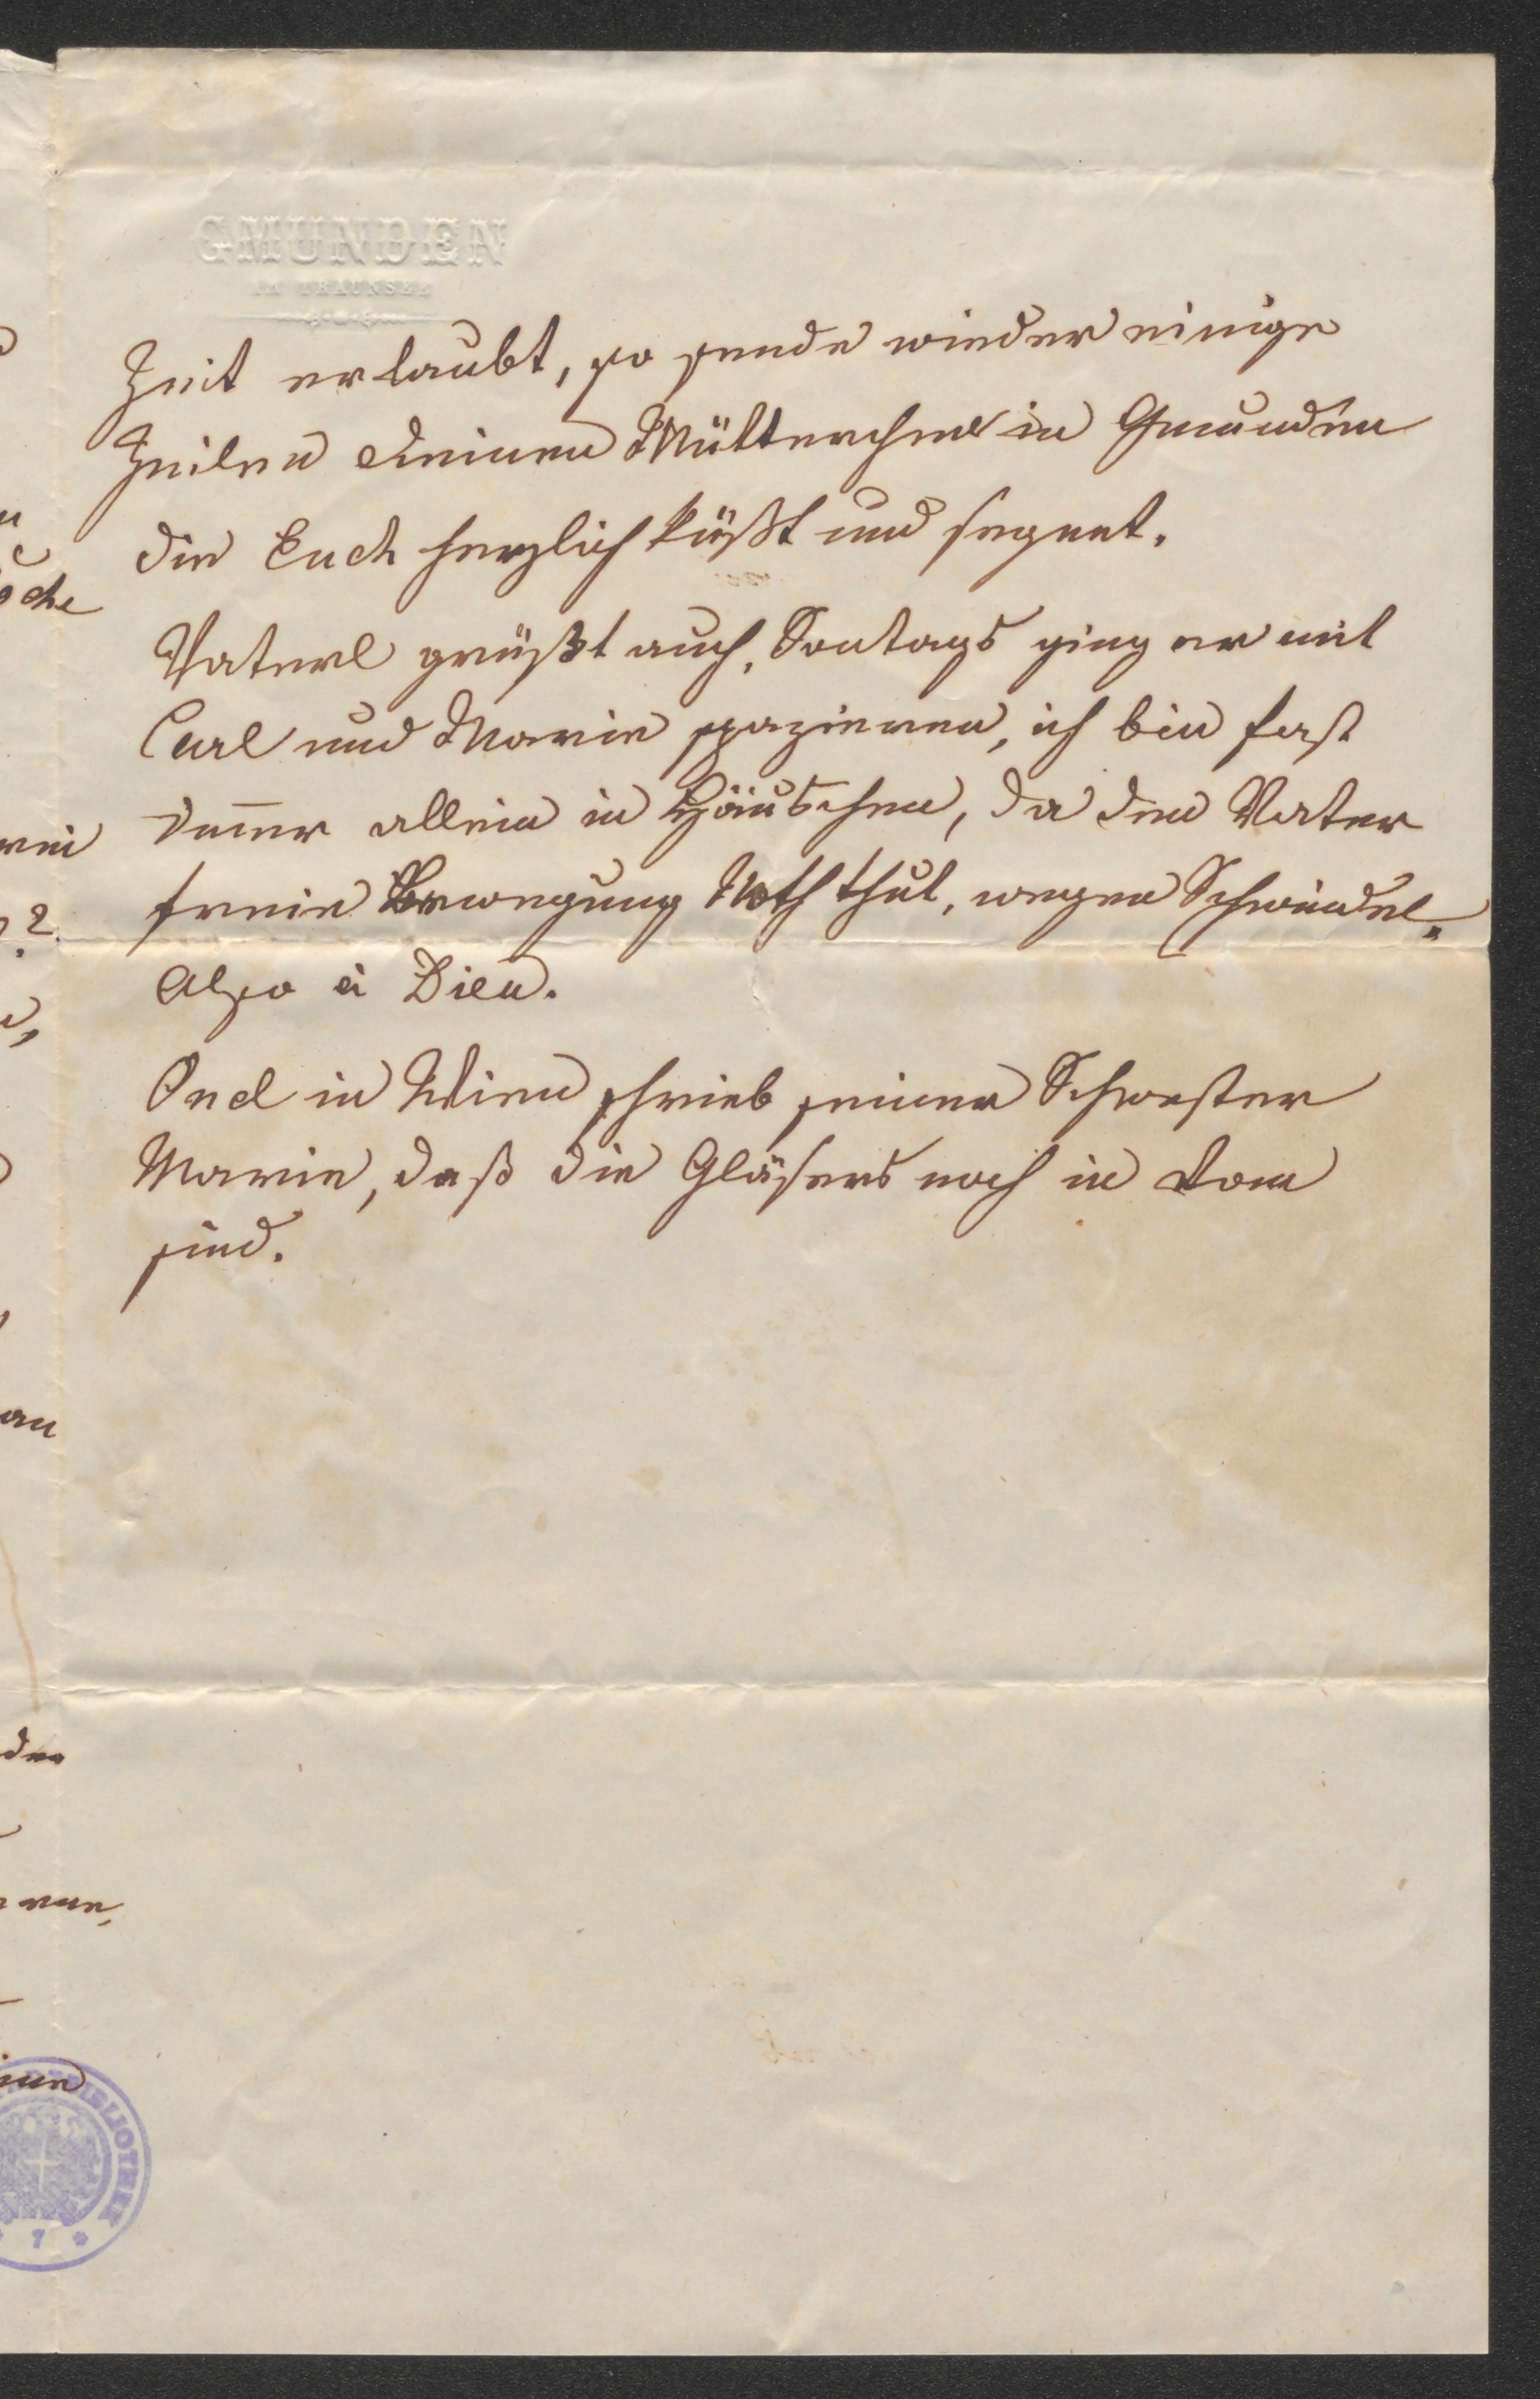 GMUNDEN
AM TRAUNSEE
Zeit erlaubt, so sende wieder einige
Zeilen Deinen Mütterchen in Gmunden
die Euch herzlich küßt und segnet.
Vaterl grüßt auch, Sontags ging er mit
Carl und Marie spazieren, ich bin fast
im̅er allein in Häuschen, da dem Vater
freie Bewegung Noth thut, wegen Schwindel.
Also à Dieu.
in Wien schrieb seiner Schwester
Marie, daß die Gläsers noch in
sind.